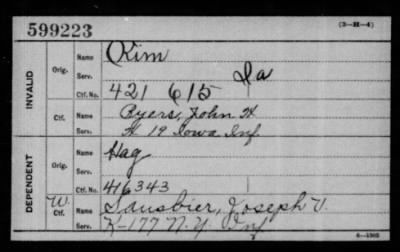 599223
(3-H-4)
INVALID
Orig.
Name Kim
Serv. Ia
Ctf. No. 421 615
Ctf.
Name Byers, John H
Serv. H 19 Iowa Inf.
DEPENDENT
Orig.
Name Hag
Serv.
Ctf. No. 416343
W. Ctf.
Name Sausbier, Joseph V.
Serv. K-177 N.Y. Inf